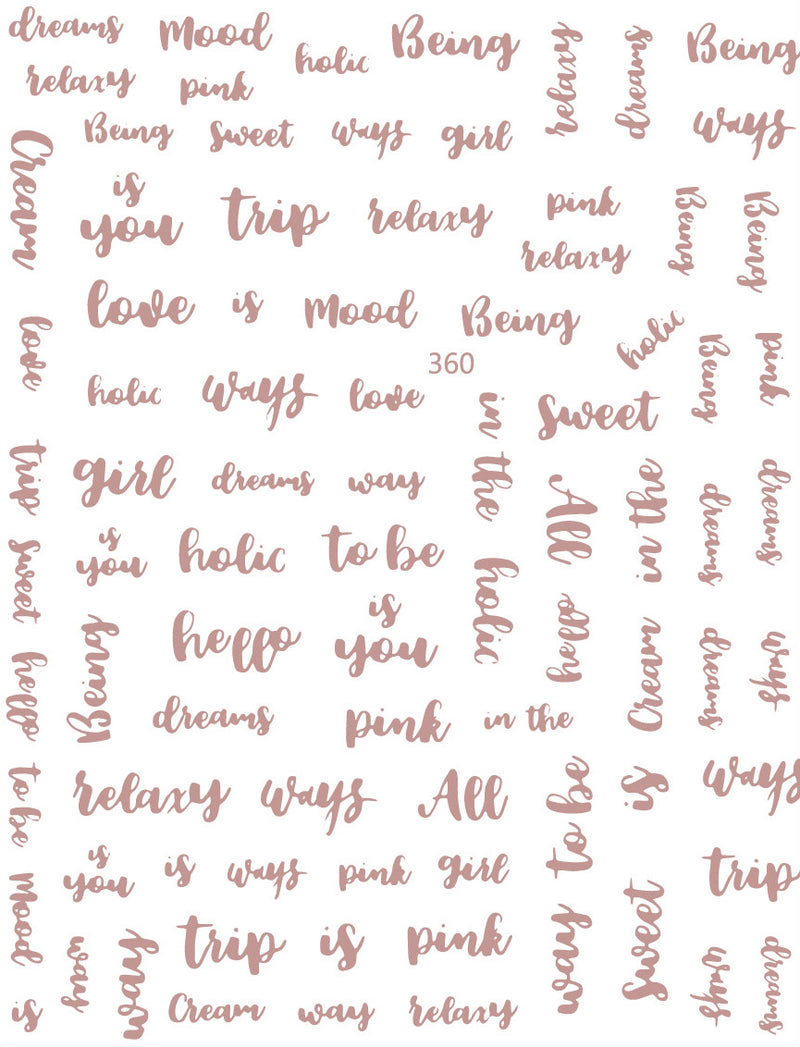 dreams Mood holic Being relaxy dreams Being
relaxy pink
Being sweet ways girl ways
Cream
is
you trip relaxy pink Being Being
relaxy
love is Mood Being holic
love 360 Being pink
holic ways love in the sweet
trip girl dreams way All in the dreams dreams
sweet is
you holic to be holic hello
Being hello is
you Cream dreams ways
hello dreams pink in the
to be relaxy ways All way to be is ways
is
you is ways pink girl trip
Mood way way trip is pink sweet ways dreams
is Cream way relaxy